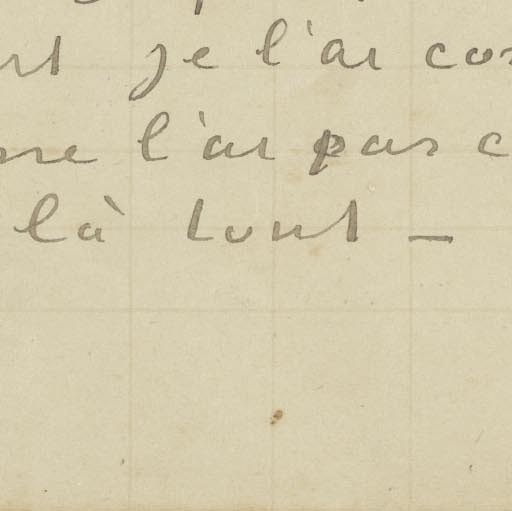 je l'ai
ne l'ai pas
là tout –